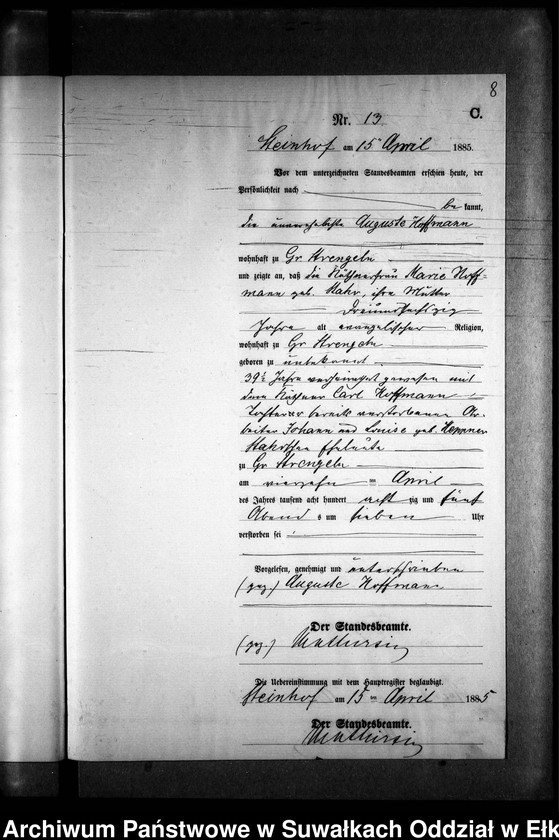 8
Nr. 13
C.
Steinhof am 15 April 1885.
Vor dem unterzeichneten Standesbeamten erschien heute, der
Persönlichkeit nach
bekannt,
die unverehelichte Auguste Hoffmann
wohnhaft zu Gr Strengeln
und zeigte an, daß die Käthnerfrau Marie Hoff-
mann geb. Stahr, ihre Mutter
dreiundsechszig
Jahre alt evangelischer Religion,
wohnhaft zu Gr Strengeln
geboren zu unbekannt
39½ Jahre verheirathet gewesen mit
dem Käthner Carl Hoffmann
Tochter der bereits verstorbenen Ar-
beiter Johann und Louise geb.
Stahrschen Eheleute
zu Gr Strengeln
am vierzehn ten April
des Jahres tausend acht hundert achtzig und fünf
Abends um sieben Uhr
verstorben sei
Vorgelesen, genehmigt und unterschrieben
(gez.) Auguste Hoffmann
Der Standesbeamte.
(gez.)
Die Uebereinstimmung mit dem Hauptregister beglaubigt.
Steinhof am 15 ten April 1885
Der Standesbeamte.
Archiwum Państwowe w Suwałkach Oddział w Ełk